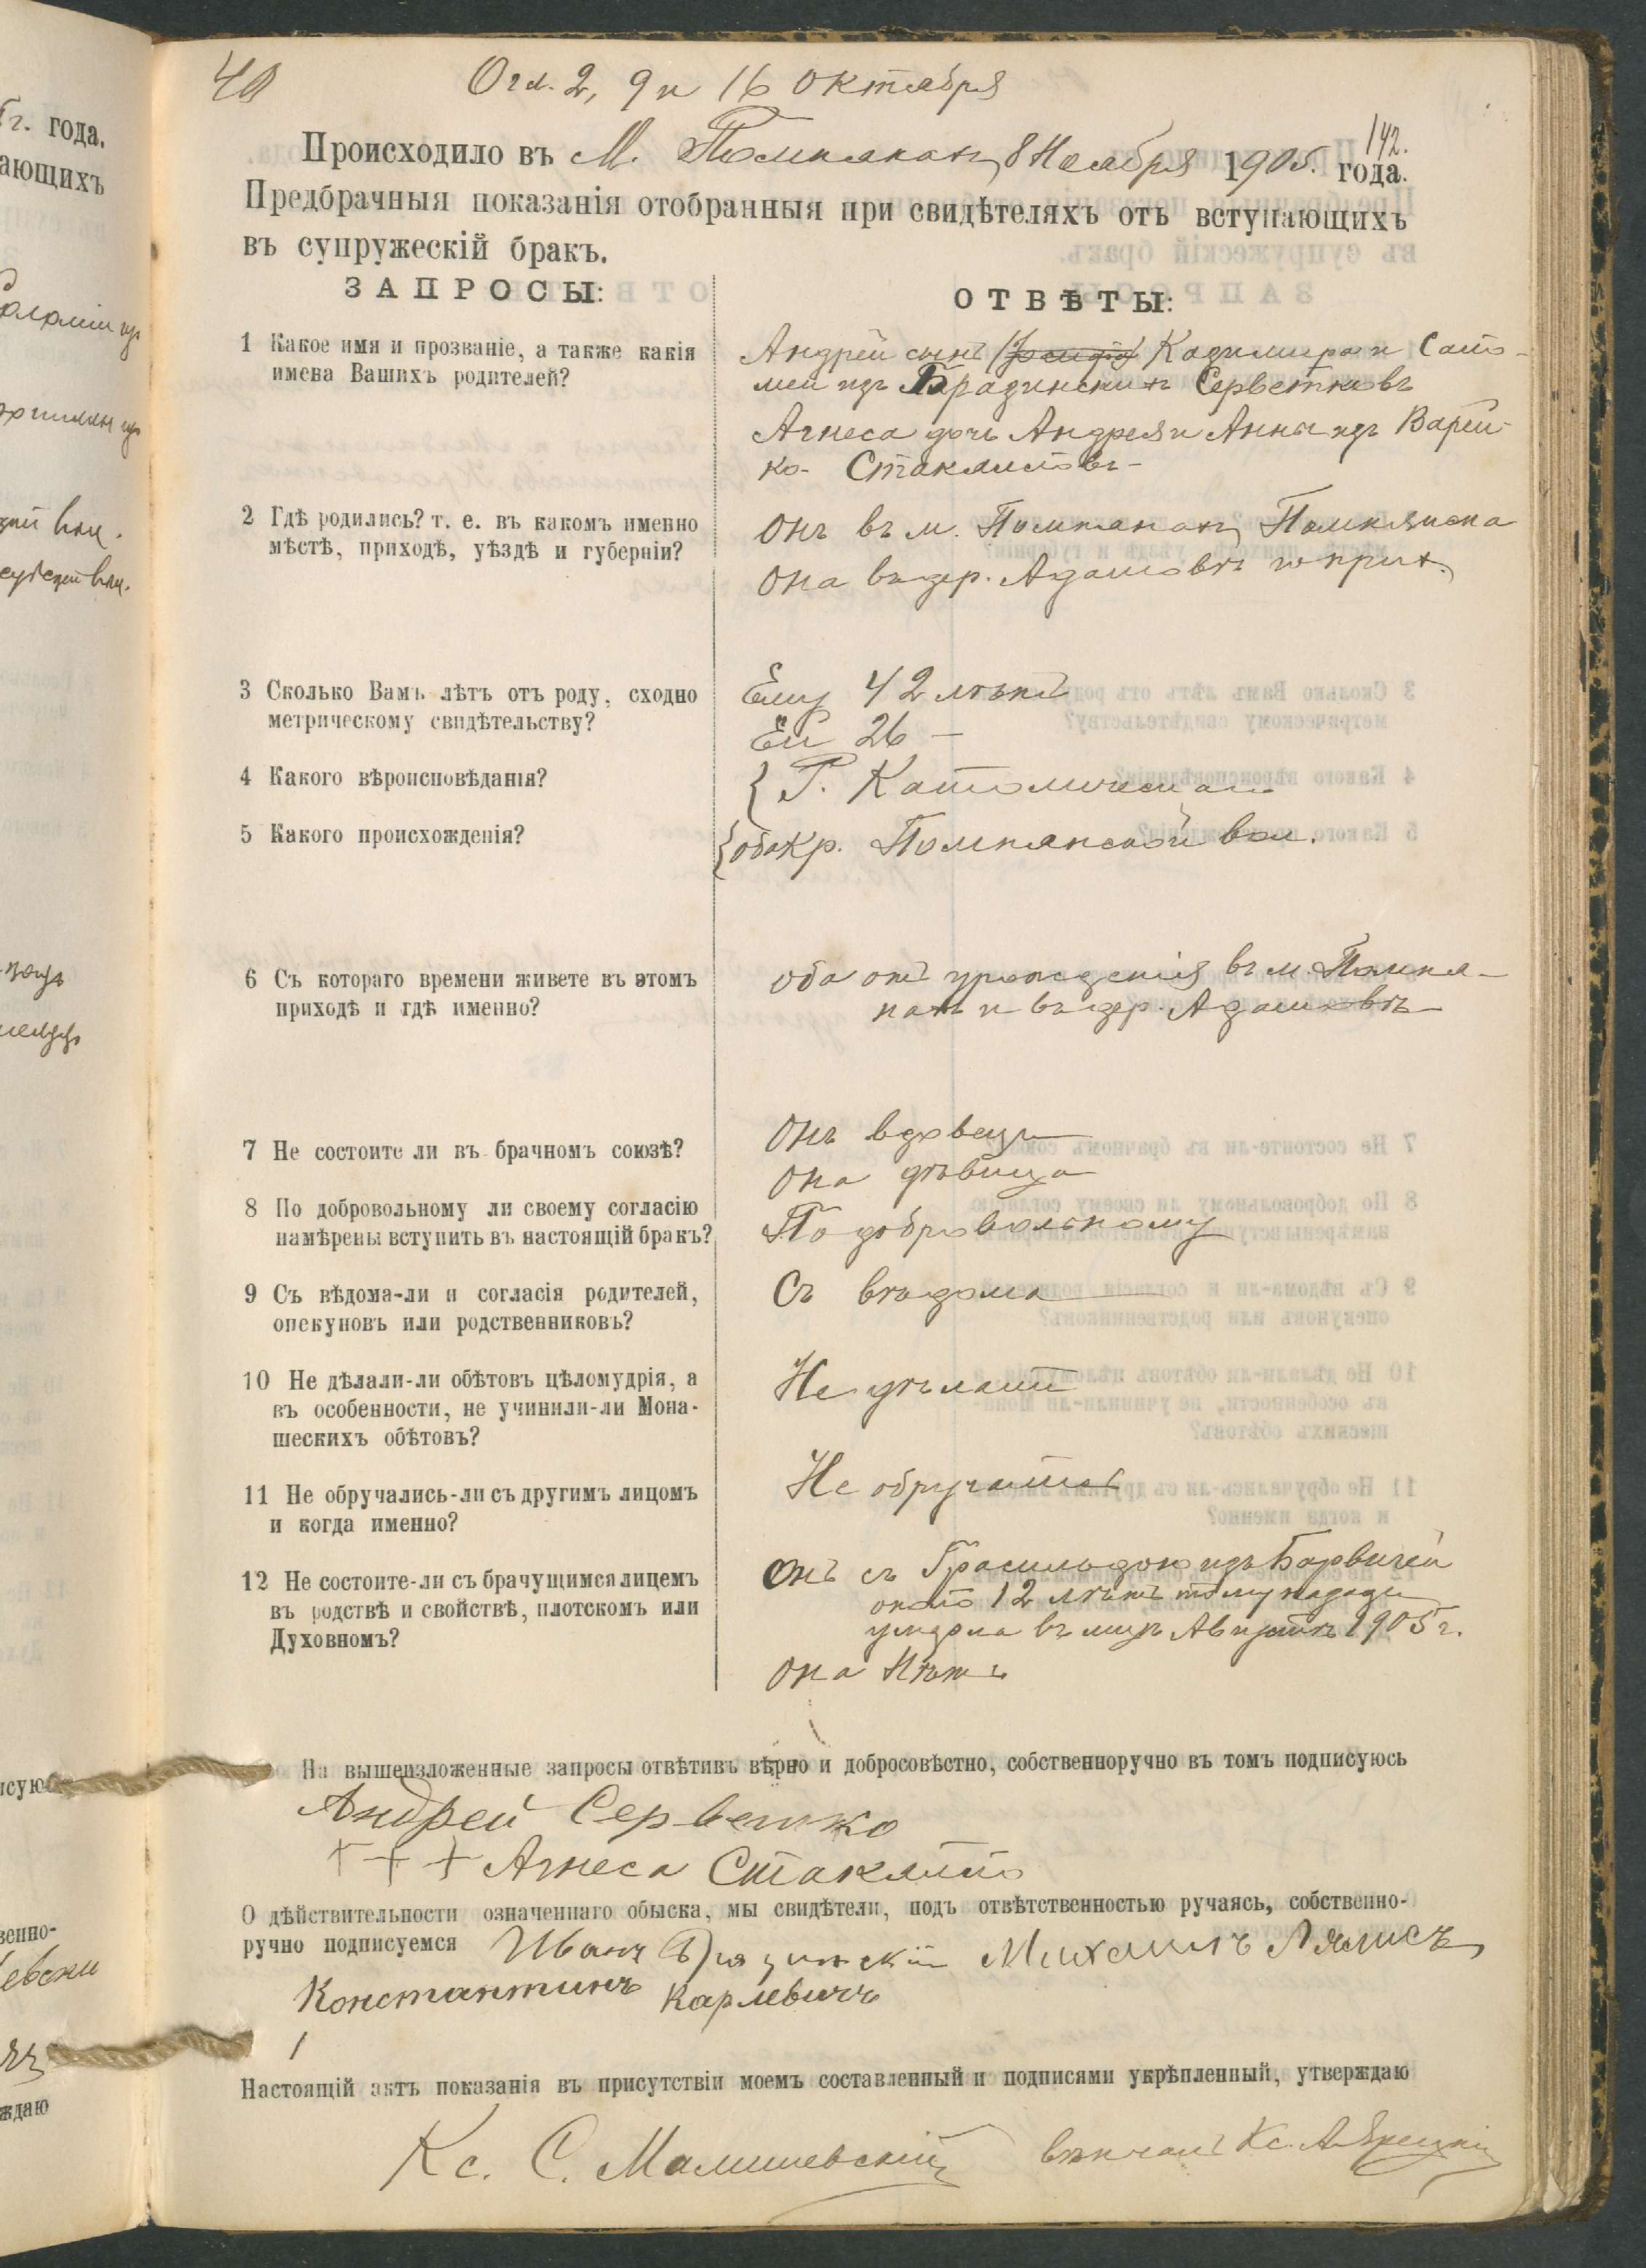 40 Огл. 2, 9 и 16 октября
142.
Происходило въ М. Помпянахъ, 8 Ноября 1905. года.
Предбрачныя показанія отобранныя при свидѣтеляхъ отъ вступающихъ
въ супружескій бракъ.
ЗАПРОСЫ: ОТВѢТЫ:
1 Какое имя и прозваніе, а также какія
имена Вашихъ родителей?
Андрей сынъ Казимира и Сало-
меи изъ Бразинскихъ Серветковъ
Агнеса дочь Андрея и Анны изъ Варей-
ко- Стаклитовъ-
2 Гдѣ родились? т. е. въ какомъ именно
мѣстѣ, приходѣ, уѣздѣ и губерніи?
Онъ въ м. Помпянахъ
Она въ дер. Адамовѣ го прих.
3 Сколько Вамъ лѣтъ отъ роду, сходно
метрическому свидѣтельству?
Ему 42 лѣтъ
Ей 26 —
4 Какого вѣроисповѣданія?
Р. Католическаго
5 Какого происхожденія?
оба кр. Помпянской вол.
6 Съ котораго времени живете въ этомъ
приходѣ и гдѣ именно?
оба отъ урожденія въ м. Помпя-
нахъ и въ дер. Адамовѣ
7 Не состоите ли въ брачномъ союзѣ?
Онъ вдовецъ
Она дѣвица
8 По добровольному ли своему согласію
намѣрены вступить въ настоящій бракъ?
По добровольному
9 Съ вѣдома-ли и согласія родителей,
опекуновъ или родственниковъ?
Съ вѣдома
10 Не дѣлали-ли обѣтовъ цѣломудрія, а
въ особенности, не учинили-ли Мона-
шескихъ обѣтовъ?
Не дѣлали
11 Не обручались-ли съ другимъ лицомъ
и когда именно?
Не обручались
12 Не состоите-ли съ брачущимся лицемъ
въ родствѣ и свойствѣ, плотскомъ или
Духовномъ?
Онъ съ изъ Борвичей
около 12 лѣтъ тому назадъ
умерла въ мцѣ Августѣ 1905 г.
Она Нѣтъ
На вышеизложенные запросы отвѣтивъ вѣрно и добросовѣстно, собственноручно въ томъ подписуюсь
Андрей Серветко
+ + + Агнеса Стаклито
О дѣйствительности означеннаго обыска, мы свидѣтели, подъ отвѣтственностью ручаясь, собственно-
ручно подписуемся Иванъ Бразинскій Михаилъ Лялисъ
Константинъ Карлевичъ
Настоящій актъ показанія въ присутствіи моемъ составленный и подписями укрѣпленный, утверждаю
Кс. С. Малишевскій вѣнчалъ Кс.